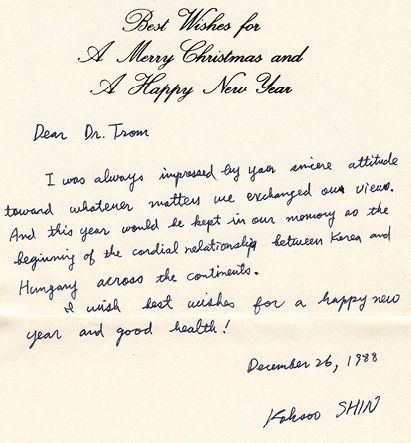 Best Wishes for
A Merry Christmas and
A Happy New Year
Dear Dr. Trom
I was always impressed by your sincere attitude
toward whatever matters we exchanged our views.
And this year would be kept in our memory as the
beginning of the cordial relationship between Korea and
Hungary across the continents.
I wish best wishes for a happy new
year and good health!
December 26, 1988
Kaksoo SHIN